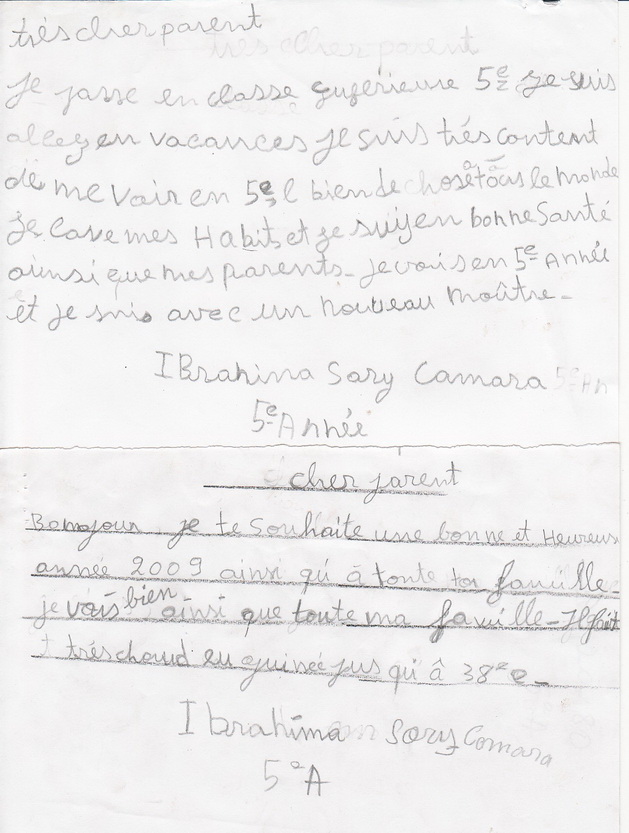 très cher parent
Je passe en classe supérieure 5e je suis
allez en vacances je suis très content
de me voir en 5e, l bien de chose à tous le monde
Je lave mes Habits et je suis en bonne Santé
ainsi que mes parents - je vais en 5e Année
et je suis avec un nouveau maître -
IBrahima Sory Camara 5e An
5e Année
cher parent
Bonjour je te Souhaite une bonne et Heureus
année 2009 ainsi qu'à toute ta famille -
je vais bien - ainsi que toute ma famille - Il fait
très chaud en guinée jus qu'â 38°e -
Ibrahima Sory Camara
5°A